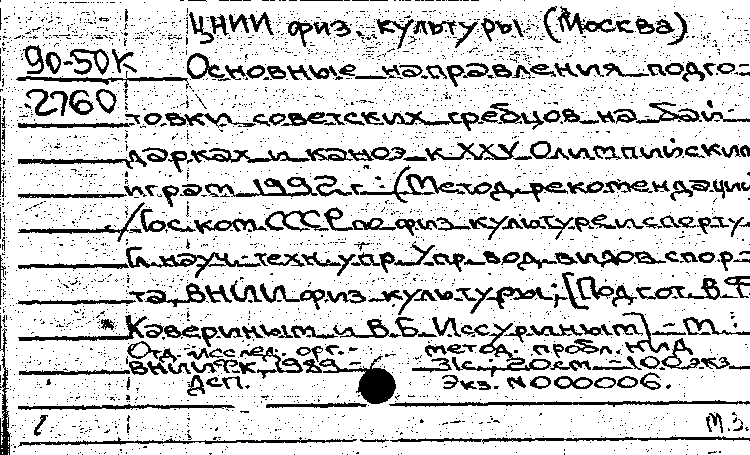 ЦНИИ физ. культуры (Москва)
90-50К
Основные направления подго-
2760
товки советских гребцов на бай-
дарках и каноэ к XXV Олимпийским
играм 1992 г.: (Метод. рекомендации)
/Гос. ком. СССР по физ. культуре и спорту.
Гл. науч.-техн. упр. Упр. вод. видов спор-
та, ВНИИ физ. культуры; [Подгот. В.Ф.
Кавериным и В.Б. Иссуриным] - М.:
Отд. исслед. орг.-метод. пробл. НИД
ВНИИФК, 1989 - 31с.; 20см. - 100экз
ДСП. Экз. N000006.
М.З.